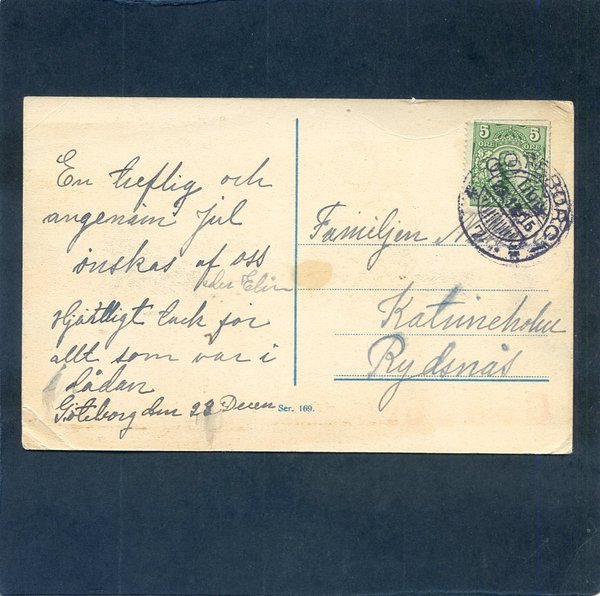 En treflig och
angenäm jul
önskas af oss
eder Elin
Hjärtligt tack för
allt som var i
lådan
Göteborg den 22 Decem
Ser. 169.
5 5
ÖRE ÖRE
GÖTEBORG
Familjen
Katrineholm
Rydsnäs